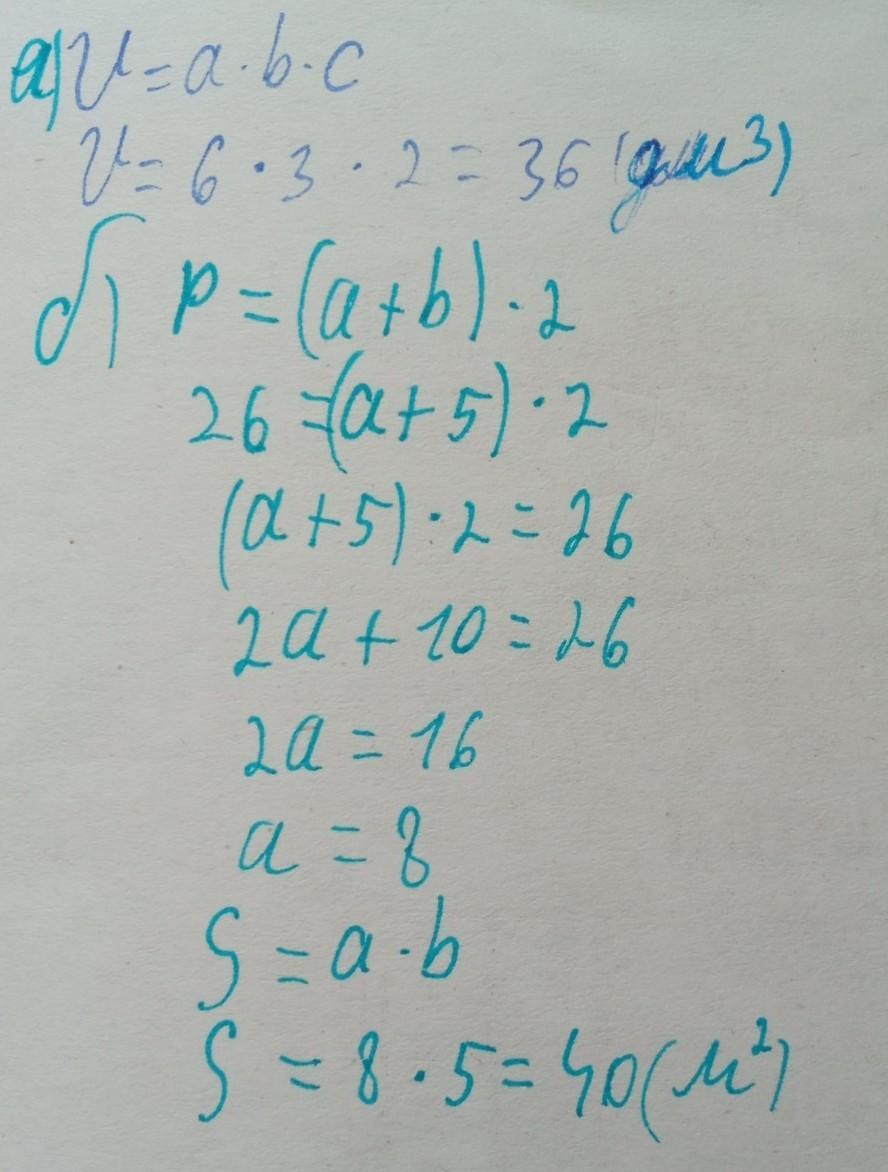 а) V = a · b · c
V = 6 · 3 · 2 = 36 (дм³)
б) P = (a + b) · 2
26 = (a + 5) · 2
(a + 5) · 2 = 26
2a + 10 = 26
2a = 16
a = 8
S = a · b
S = 8 · 5 = 40 (м²)